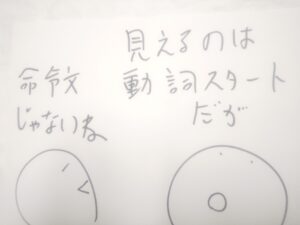 見えるのは
動詞スタート
だが
命令文
じゃないね